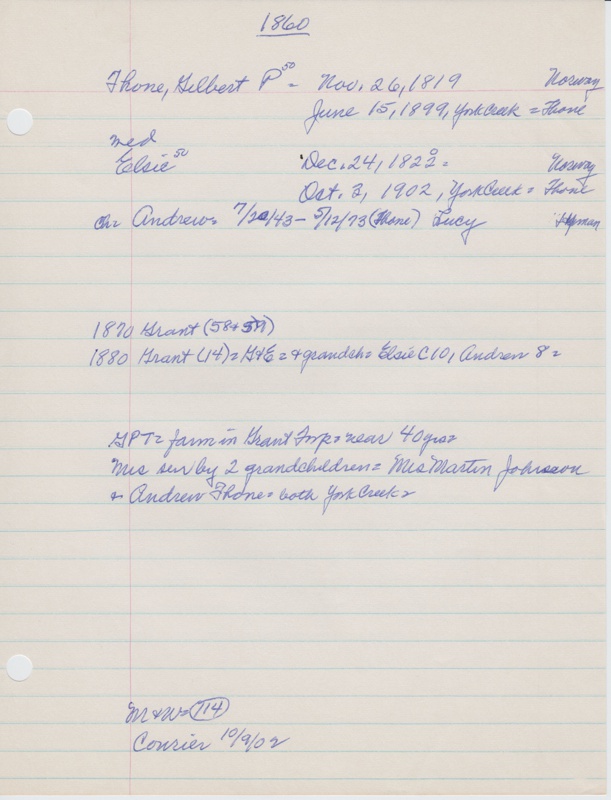 1860
Thone, Gilbert P 50 = Nov. 26, 1819 Norway
June 15, 1899, York Creek = Thone
med
Elsie 50 Dec. 24, 1822 = Norway
Oct. 3, 1902, York Creek = Thone
ch= Andrew= 7/20/43 - 5/12/73 (Thone) Lucy
1870 Grant (58+
1880 Grant (14) = G+E = + grandch= Elsie C 10, Andrew 8 =
GPT= farm in Grant Twp= near 40 yrs=
Mrs sur by 2 grandchildren= Mrs Martin Johnson
+ Andrew Thone= both York Creek=
M+W= 114
Courier 10/9/02